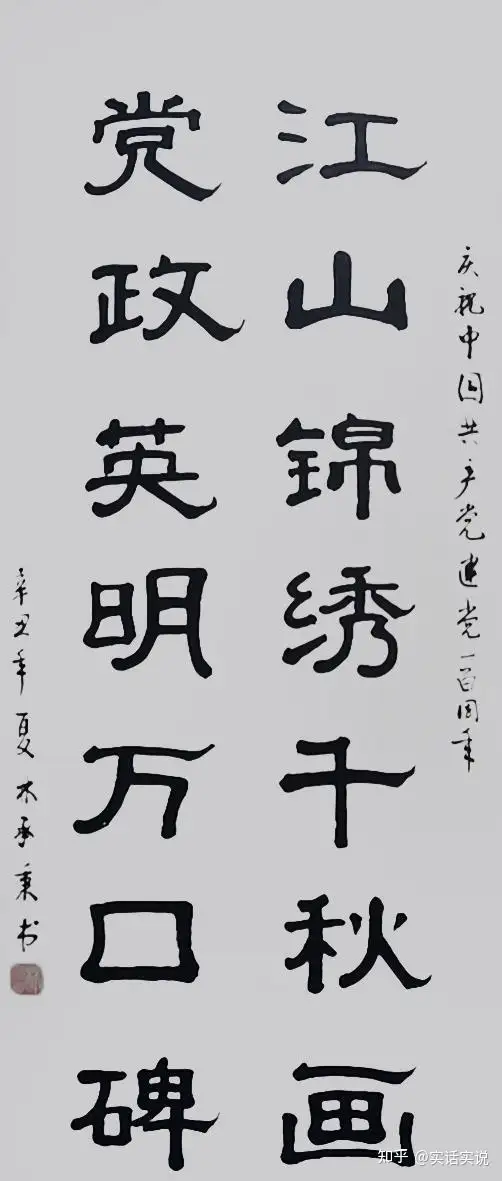 庆祝中国共产党建党一百周年
江山锦绣千秋画
党政英明万口碑
辛丑年夏林承秉书
知乎 @实话实说